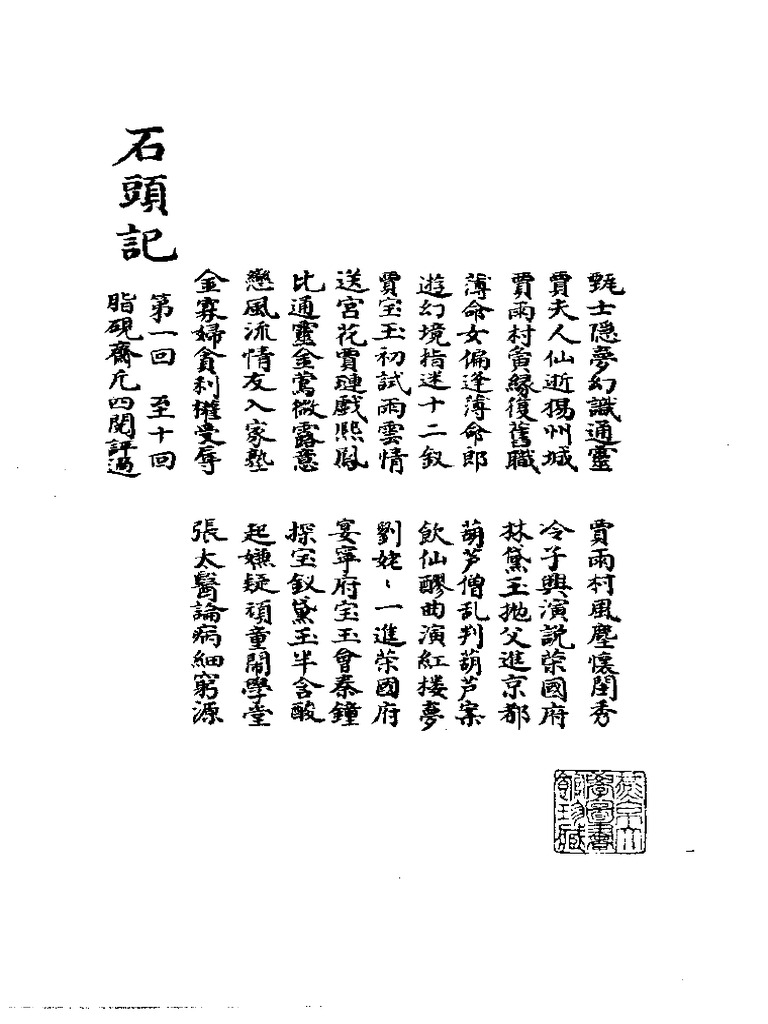 甄士隐夢幻識通靈 賈雨村風塵懷閨秀
賈夫人仙逝揚州城 冷子興演說荣國府
賈雨村夤緣復舊職 林黛玉抛父進京都
薄命女偏逢薄命郎 葫芦僧乱判葫芦案
遊幻境指迷十二釵 飲仙醪曲演紅楼夢
賈宝玉初試雨雲情 劉姥丶一進荣國府
送宮花賈璉戲熙鳳 宴寧府宝玉會秦鐘
比通靈金鶯微露意 探宝釵黛玉半含酸
戀風流情友入家塾 起嫌疑頑童鬧學堂
金寡婦貪利權受辱 張太醫論病細窮源
第一回 至十回
脂硯齋凡四閱評過
石頭記
燕京大學圖書館珍藏